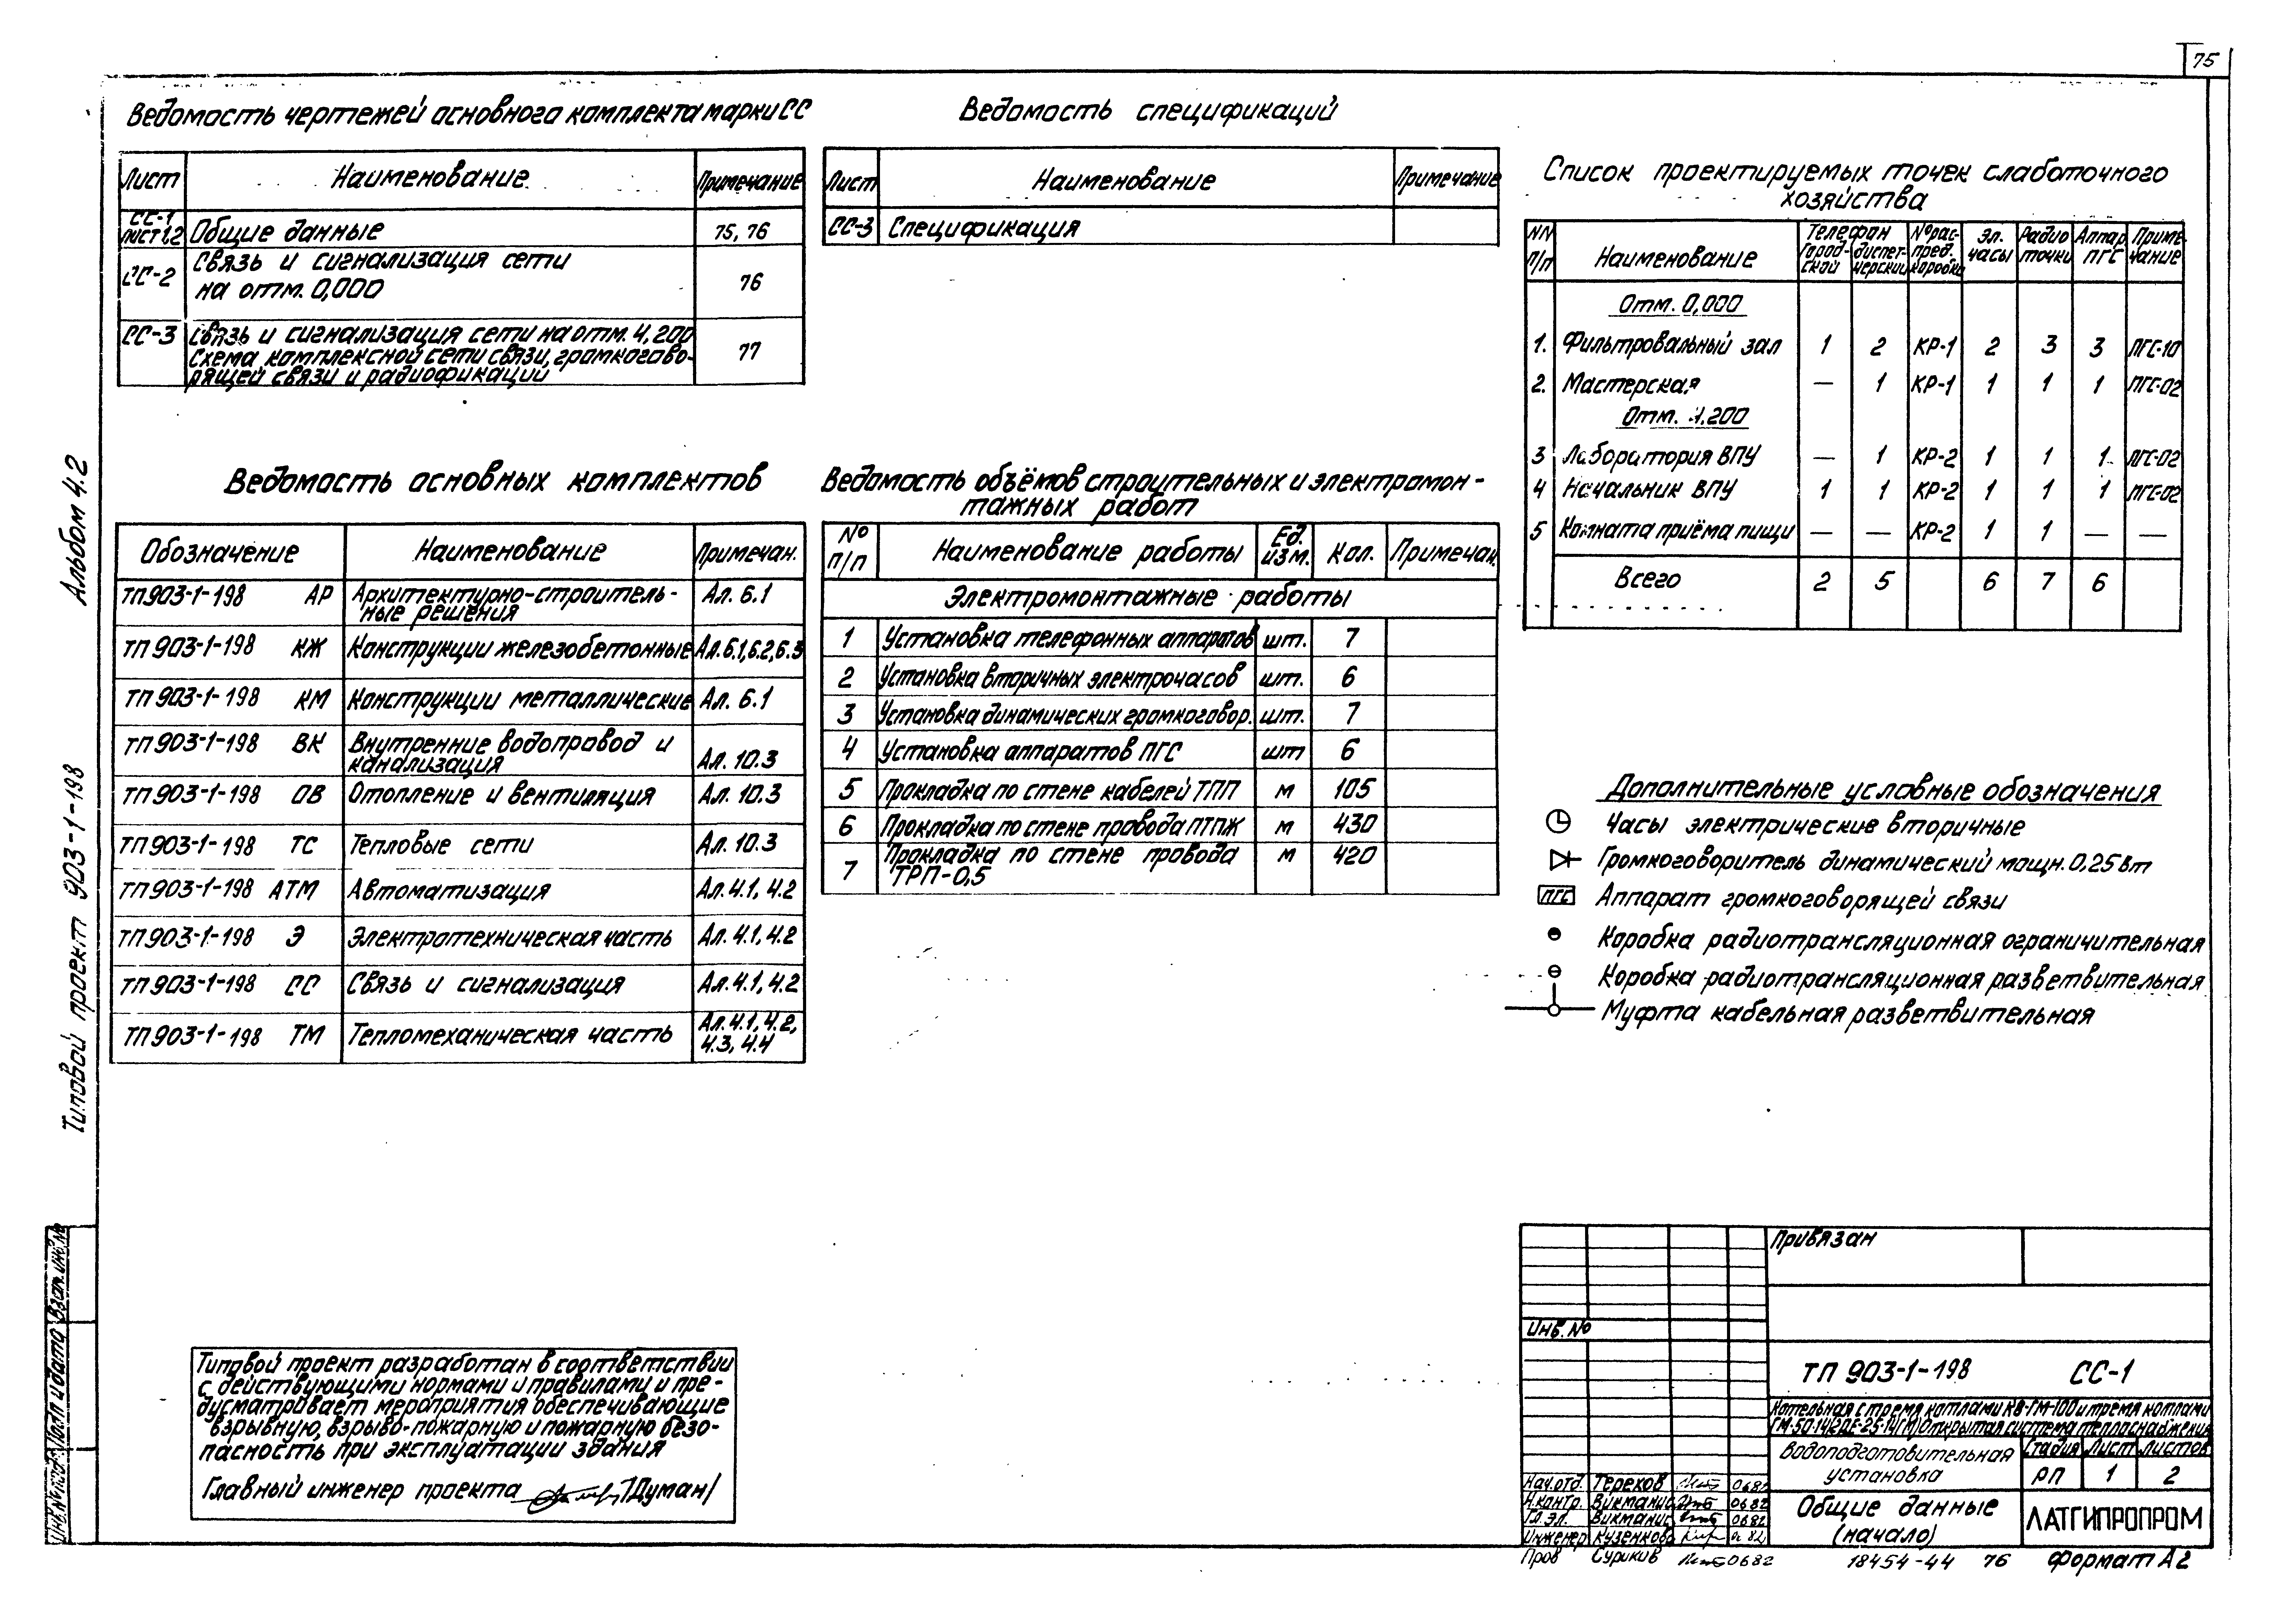 75
Ведомость чертежей основного комплекта марки СС
Лист Наименование Примечание
СС-1 лист 1,2 Общие данные 75, 76
СС-2 Связь и сигнализация сети
на отм. 0,000 76
СС-3 Связь и сигнализация сети на отм. 4,200
Схема комплексной сети связи, громкогово-
рящей связи и радиофикации 77
Ведомость спецификаций
Лист Наименование Примечание
СС-3 Спецификация
Список проектируемых точек слаботочного
хозяйства
NN п/п Наименование Телефон Город-ской диспет-черский № рас-пред. коробки Эл. часы Радио точки Аппар. ПГС Приме-чание
Отм. 0,000
1. Фильтровальный зал 1 2 КР-1 2 3 3 ПГС-10
2. Мастерская — 1 КР-1 1 1 1 ПГС-02
Отм. 4.200
3 Лаборатория ВПУ — 1 КР-2 1 1 1 ПГС-02
4 Начальник ВПУ 1 1 КР-2 1 1 1 ПГС-02
5 Комната приёма пищи — — КР-2 1 1 — —
Всего 2 5 6 7 6
Ведомость основных комплектов
Обозначение Наименование Примечан.
ТП 903-1-198 АР Архитектурно-строитель-
ные решения Ал. 6.1
ТП 903-1-198 КЖ Конструкции железобетонные Ал. 6.1, 6.2, 6.3
ТП 903-1-198 КМ Конструкции металлические Ал. 6.1
ТП 903-1-198 ВК Внутренние водопровод и
канализация Ал. 10.3
ТП 903-1-198 ОВ Отопление и вентиляция Ал. 10.3
ТП 903-1-198 ТС Тепловые сети Ал. 10.3
ТП 903-1-198 АТМ Автоматизация Ал. 4.1, 4.2
ТП 903-1-198 Э Электротехническая часть Ал. 4.1, 4.2
ТП 903-1-198 СС Связь и сигнализация Ал. 4.1, 4.2
ТП 903-1-198 ТМ Тепломеханическая часть Ал. 4.1, 4.2,
4.3, 4.4
Ведомость объёмов строительных и электромон-
тажных работ
№ п/п Наименование работы Ед. изм. Кол. Примечан.
Электромонтажные работы
1 Установка телефонных аппаратов шт. 7
2 Установка вторичных электрочасов шт. 6
3 Установка динамических громкоговор. шт. 7
4 Установка аппаратов ПГС шт 6
5 Прокладка по стене кабелей ТПП м 105
6 Прокладка по стене провода ПТПЖ м 430
7 Прокладка по стене провода
ТРП-0,5 м 420
Дополнительные условные обозначения
Часы электрические вторичные
Громкоговоритель динамический мощн. 0,25 Вт
ПГС Аппарат громкоговорящей связи
Коробка радиотрансляционная ограничительная
Коробка радиотрансляционная разветвительная
Муфта кабельная разветвительная
Альбом 4.2
Типовой проект 903-1-198
Инв. № подл. Подп. и дата Взам. инв. №
Типовой проект разработан в соответствии
с действующими нормами и правилами и пре-
дусматривает мероприятия обеспечивающие
взрывную, взрыво-пожарную и пожарную безо-
пасность при эксплуатации здания
Главный инженер проекта /Думан/
Привязан
Инв. №
ТП 903-1-198 СС-1
Котельная с тремя котлами КВ-ГМ-100 и тремя котлами
ГМ-50-14(2ДЕ-25-14ГМ) Открытая система теплоснабжения
Водоподготовительная
установка
Стадия Лист Листов
РП 1 2
Нач. отд. Терехов 0682
Н. контр. Виктанис 0682
Гл. эл. Виктанис 0682
Инженер Кузенкова 0682
Пров Суриков 0682
Общие данные
(начало)
ЛАТГИПРОПРОМ
18454-44 76 Формат А2